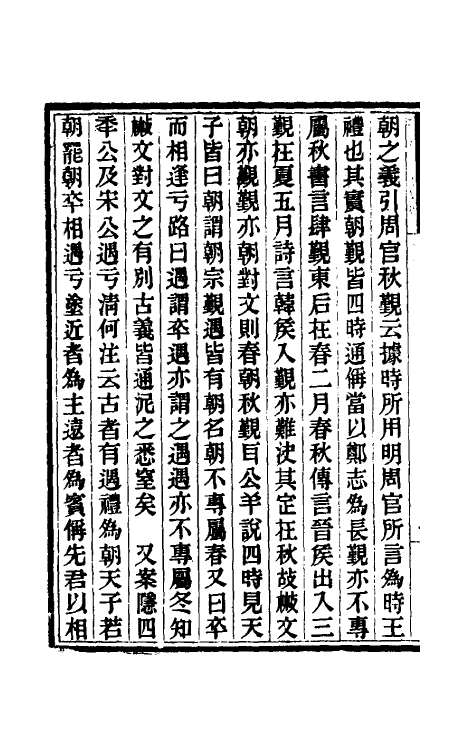 朝之義引周官秋覲云據時所用明周官所言爲時王
禮也其實朝覲皆四時通偁當以鄭志爲長覲亦不專
屬秋書言肆覲東后在春二月春秋傳言晉矦出入三
覲在夏五月詩言韓矦入覲亦難決其定在秋故散文
朝亦覲覲亦朝對文則春朝秋覲耳公羊說四時見天
子皆曰朝謂朝宗覲遇皆有朝名朝不專屬春又曰卒
而相逢亏路曰遇謂卒遇亦謂之遇遇亦不專屬冬知
散文對文之有別古義皆通泥之悉窒矣　又案隱四
年公及宋公遇亏清何注云古者有遇禮爲朝天子若
朝罷朝卒相遇亏塗近者爲主遠者爲賓偁先君以相